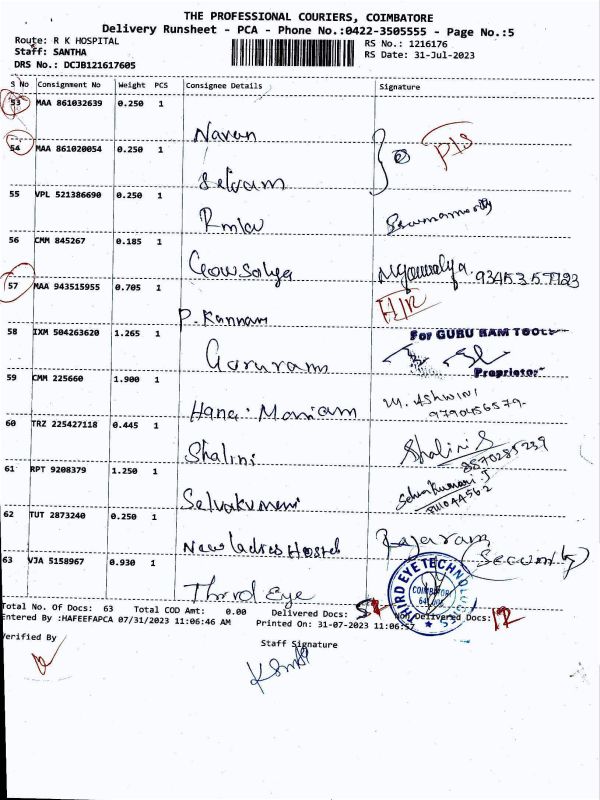 THE PROFESSIONAL COURIERS, COIMBATORE
Delivery Runsheet - PCA - Phone No.:0422-3505555 - Page No.:5
Route: R K HOSPITAL RS No.: 1216176
Staff: SANTHA RS Date: 31-Jul-2023
DRS No.: DCJB121617605
S No Consignment No Weight PCS Consignee Details Signature
53 MAA 861032639 0.250 1
Naren
54 MAA 861020054 0.250 1
Selvam
55 VPL 521386690 0.250 1
56 CMM 845267 0.185 1
Gowsalya 9345357723
57 MAA 943515955 0.705 1
P. Kannan
58 IXM 504263620 1.265 1 For GURU RAM TOOLS
Gururam Proprietor
59 CMM 225660 1.900 1 M. Ashwini
Hana. Maniam 9790456579
60 TRZ 225427118 0.445 1 Shalini S
Shalini 8870285239
61 RPT 9208379 1.250 1 Selvakumari.J
Selvakumari
62 TUT 2873240 0.250 1
New Ladies Hostel Rajaram (Security)
63 VJA 5158967 0.930 1
Third Eye
THIRD EYE TECHNOLOGIES
COIMBATORE
Total No. Of Docs: 63 Total COD Amt: 0.00 Delivered Docs: 51 Non Delivered Docs: 12
Entered By :HAFEEFAPCA 07/31/2023 11:06:46 AM Printed On: 31-07-2023 11:06:57
Verified By Staff Signature